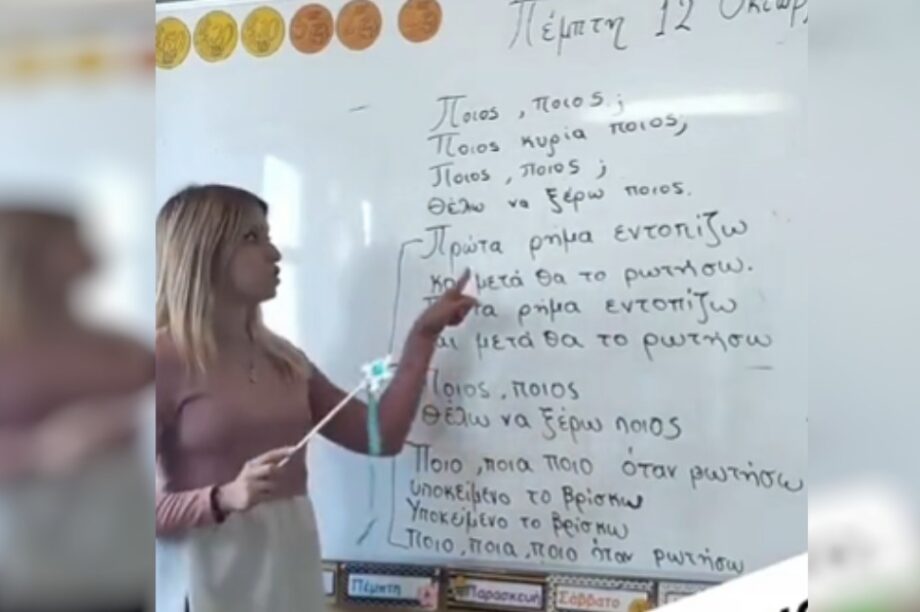 Πέμπτη 12
Ποιος, ποιος;
Ποιος κυρία ποιος;
Ποιος, ποιος;
Θέλω να ξέρω ποιος.
Πρώτα ρήμα εντοπίζω
και μετά θα το ρωτήσω.
ρήμα εντοπίζω
μετά θα το ρωτήσω
Ποιος, ποιος
Θέλω να ξέρω ποιος
Ποιο, ποια ποιο όταν ρωτήσω
υποκείμενο το βρίσκω
Υποκείμενο το βρίσκω
Ποιο, ποια, ποιο όταν ρωτήσω
Πέμπτη
Παρασκευή
Σάββατο